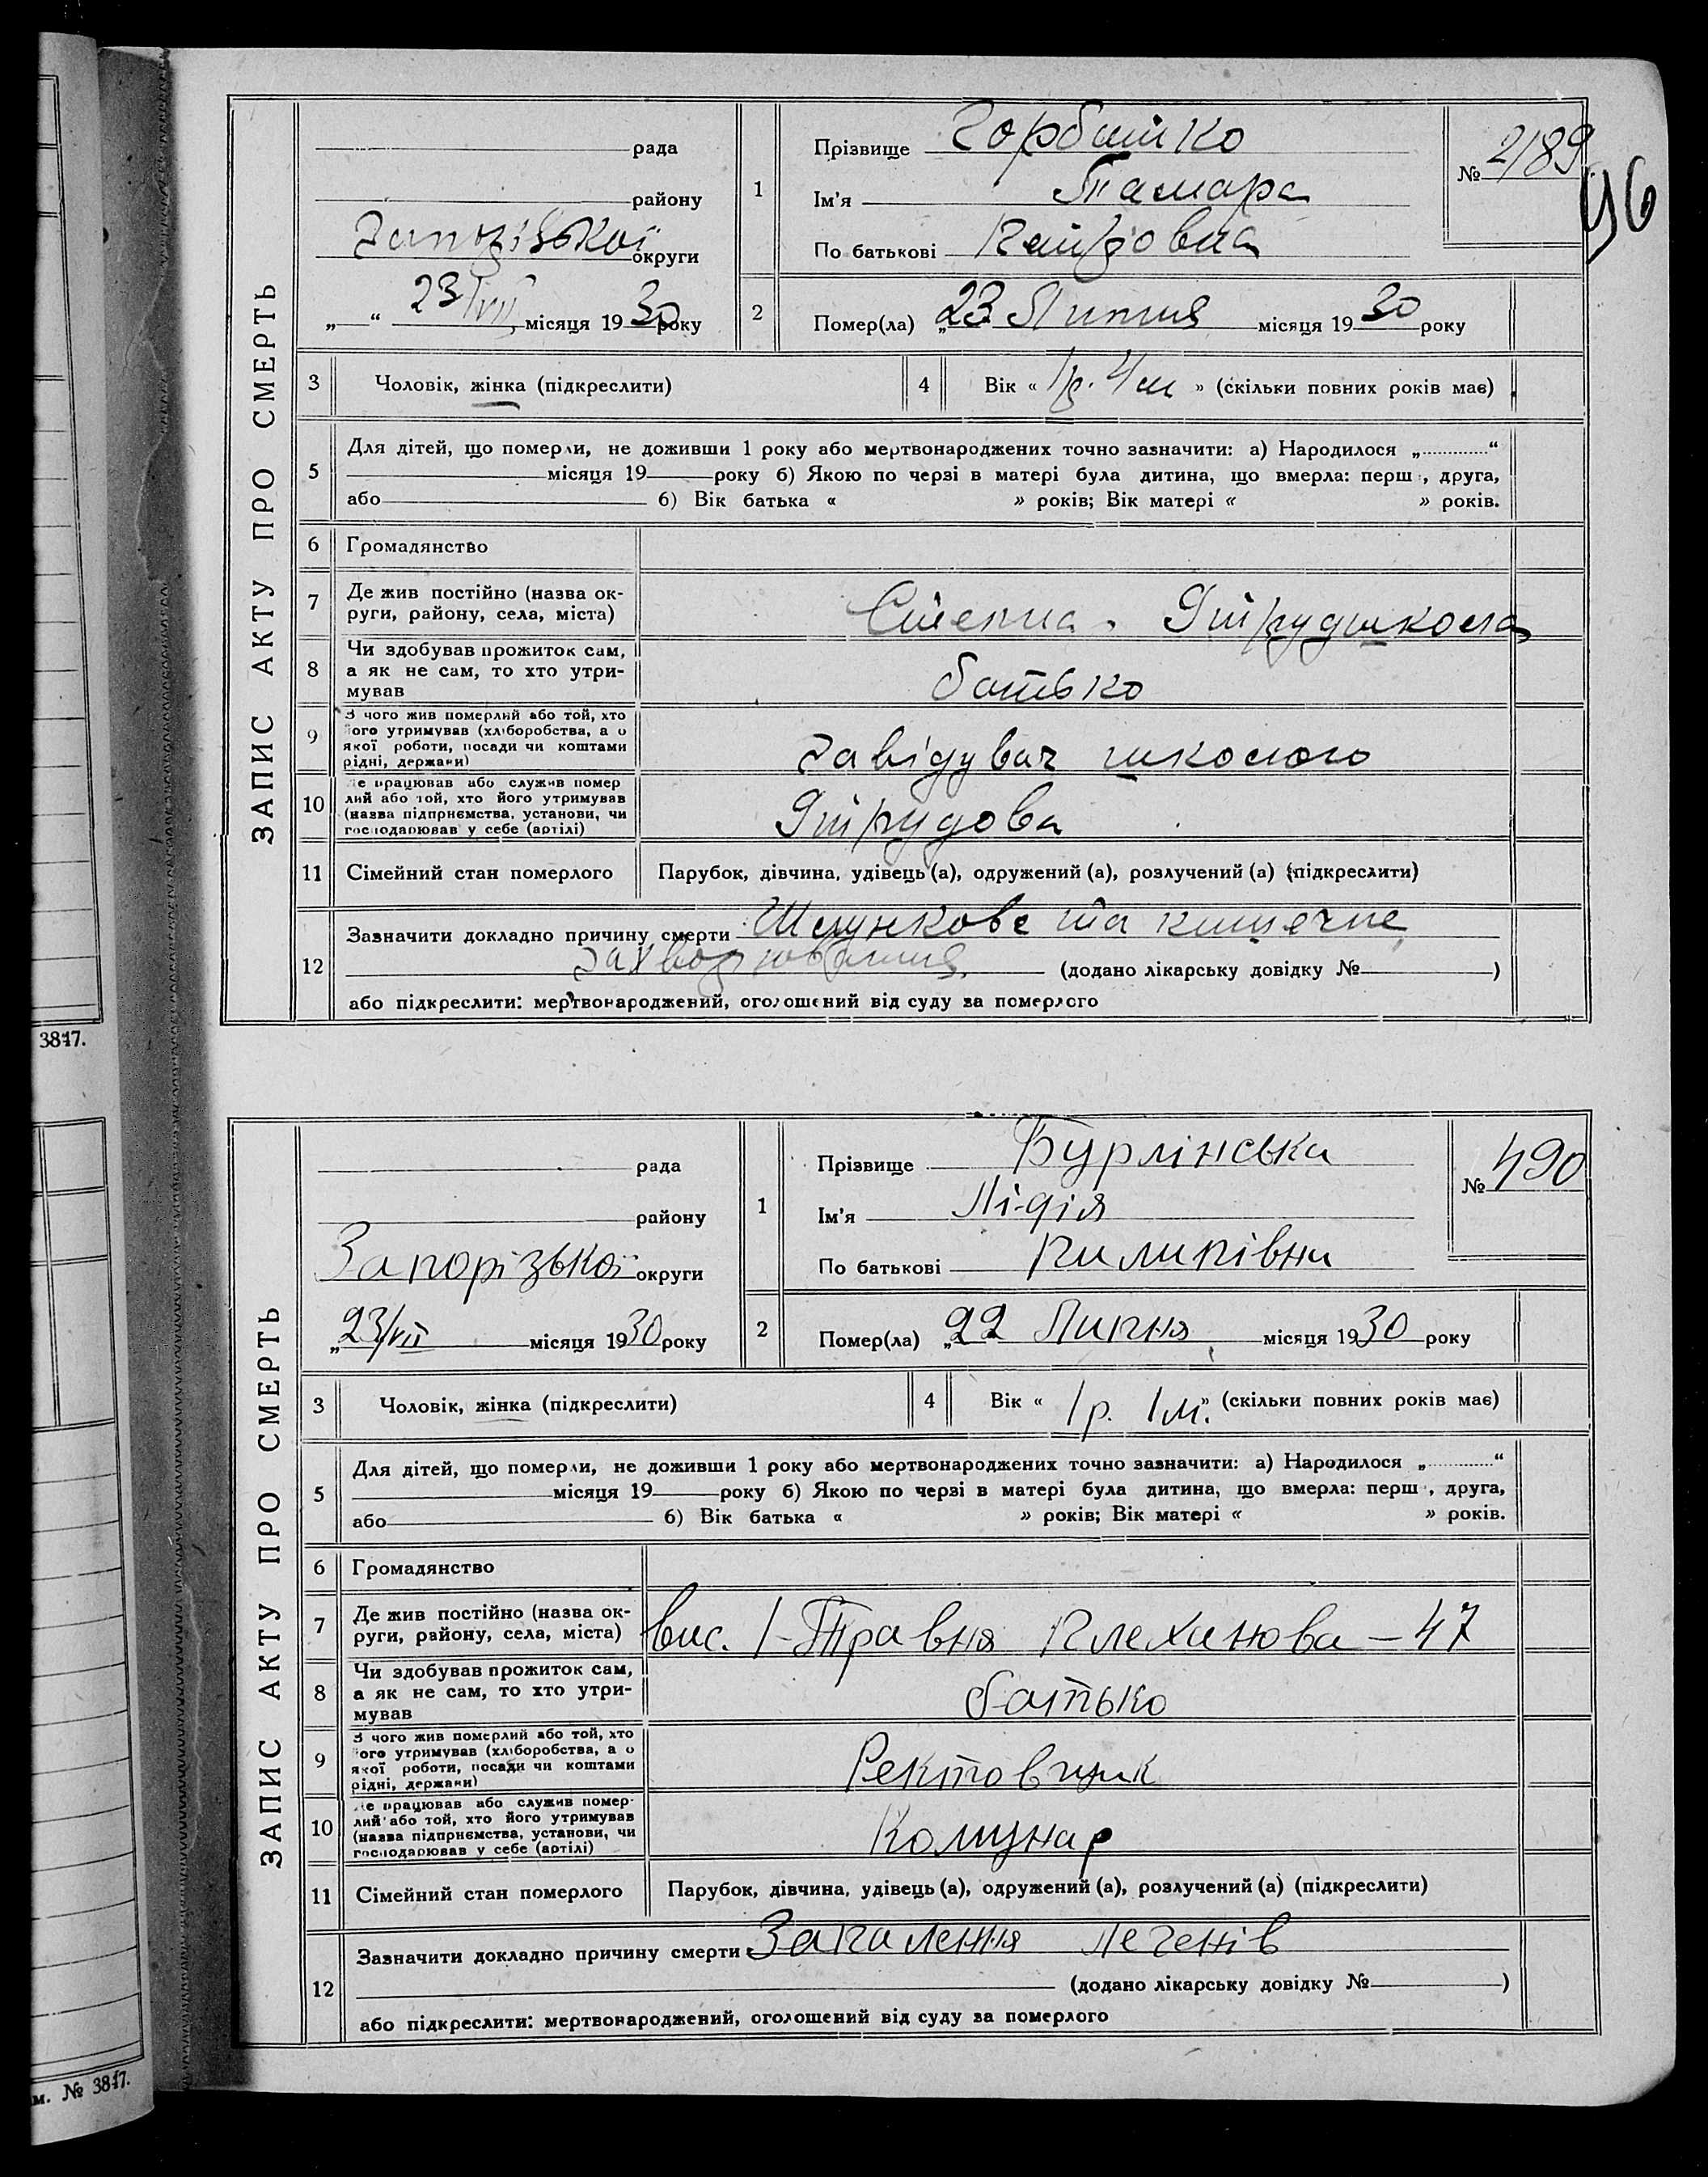 3847.
м. № 3847.
96
ЗАПИС АКТУ ПРО СМЕРТЬ
рада
району
Запорізької округи
„ “ 23/VII місяця 1930 року
1
Прізвище Горбатко
Ім'я Тамара
По батькові
№ 489
2
Помер(ла) „23 Липня місяця 1930 року
3 Чоловік, жінка (підкреслити)
4 Вік « 1 р. 4 м » (скільки повних років має)
5
Для дітей, що померли, не доживши 1 року або мертвонароджених точно зазначити: а) Народилося „ “
місяця 19 року б) Якою по черзі в матері була дитина, що вмерла: перш , друга,
або б) Вік батька « » років; Вік матері « » років.
6 Громадянство
7 Де жив постійно (назва ок-
руги, району, села, міста)
8 Чи здобував прожиток сам,
а як не сам, то хто утри-
мував
батько
9 З чого жив померлий або той, хто
його утримував (хліборобства, а о
якої роботи, посади чи коштами
рідні, держави)
Завідувач школою
10 Де працював або служив помер
лий або той, хто його утримував
(назва підприємства, установи, чи
господарював у себе (артілі)
11 Сімейний стан померлого Парубок, дівчина, удівець (а), одружений (а), розлучений (а) (підкреслити)
12
Зазначити докладно причину смерти Шлункове та кишечне
захворювання. (додано лікарську довідку № )
або підкреслити: мертвонароджений, оголошений від суду за померлого
ЗАПИС АКТУ ПРО СМЕРТЬ
рада
району
Запорізької округи
„23/VII місяця 1930 року
1
Прізвище Бурлінська
Ім'я Лідія
По батькові Пилипівна
№ 490
2
Помер(ла) „22 Липня місяця 1930 року
3 Чоловік, жінка (підкреслити)
4 Вік « 1 р. 1 м. » (скільки повних років має)
5
Для дітей, що померли, не доживши 1 року або мертвонароджених точно зазначити: а) Народилося „ “
місяця 19 року б) Якою по черзі в матері була дитина, що вмерла: перш , друга,
або б) Вік батька « » років; Вік матері « » років.
6 Громадянство
7 Де жив постійно (назва ок-
руги, району, села, міста)
вис. 1-Травня Плеханова – 47
8 Чи здобував прожиток сам,
а як не сам, то хто утри-
мував
батько
9 З чого жив померлий або той, хто
його утримував (хліборобства, а о
якої роботи, посади чи коштами
рідні, держави)
10 Де працював або служив помер-
лий або той, хто його утримував
(назва підприємства, установи, чи
господарював у себе (артілі)
Комунар
11 Сімейний стан померлого Парубок, дівчина, удівець (а), одружений (а), розлучений (а) (підкреслити)
12
Зазначити докладно причину смерти Запалення легенів
(додано лікарську довідку № )
або підкреслити: мертвонароджений, оголошений від суду за померлого